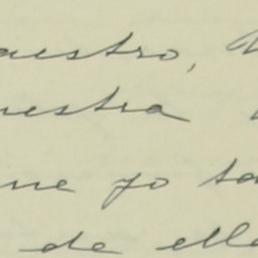 aestro,
uestra
ue yo ta
de ella